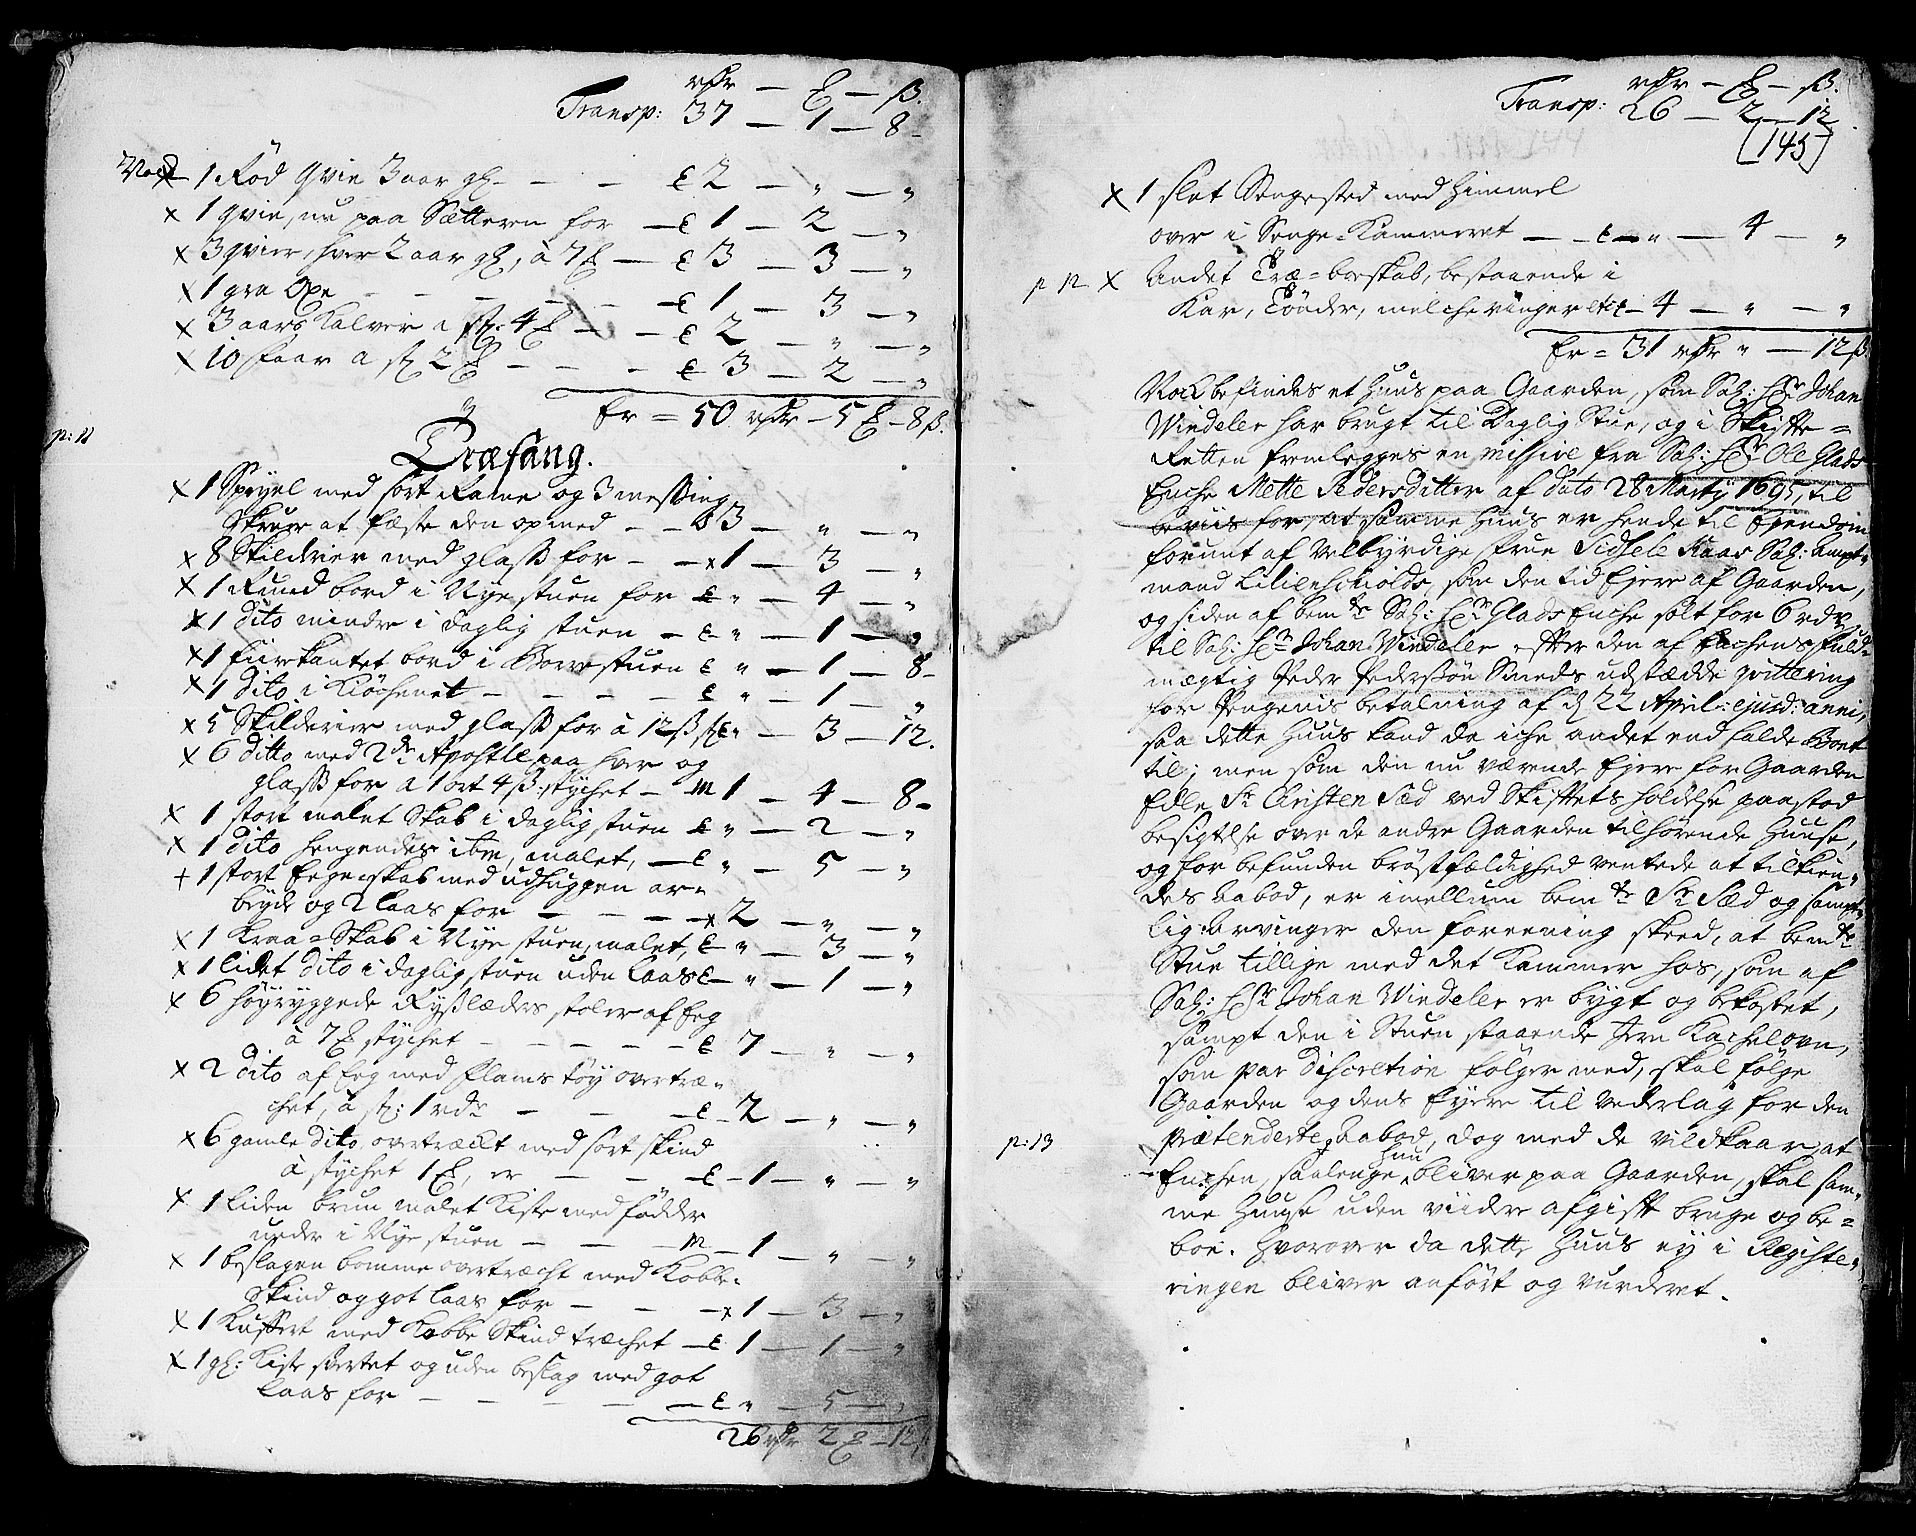 rdr — ℔ — ß.
Transp: 37 — 1 — 8
1 Rød qvie 3 aar gl. — — — 2 — „ — „
x 1 qvie, nu paa Sætteren for — 1 — 2 — „
x 3 qvier, hver 2 aar gl., à 7 — 3 — 3 — „
x 1 gra Oxe — — — 1 — 3 — „
x 3 aars Kalver à st: 4 — — 2 — „ — „
x 10 faar a st 2 — — — 3 — 2 — „
Er = 50 rdr — 5 — 8 ß.
p: 11
Træfang.
x 1 Speyel med sort Rame og 3 messing
Skruer at fæste den op med — — 3 — „ — „
x 8 Skilderier med glass for — x 1 — 3 — „
x 1 Rund bord i Nye stuen for „ — 4 — „
x 1 dito mindre i daglig stuen — „ — 1 — „
x 1 fiirkantet bord i Borrestuen „ — 1 — 8
x 1 dito i Kiøchenet — — — „ — 1 — „
x 5 Skilderier med glass for à 12 ß st „ — 3 — 12.
x 6 ditto med 2de Apostle paa hver og
glass for a 1 ort 4 ß: stychet — m 1 — 4 — 8
x 1 stort malet Skab i daglig stuen „ — 2 — „
x 1 dito hengendes ibm, malet, — „ — 5 — „
+ 1 stort Eegeskab med udhuggen ar-
beyde og 2 laas for — — — x 2 — „ — „
x 1 Kraa-Skab i Nye stuen, malet, „ — 3 — „
x 1 lidet dito i daglig stuen uden laas „ — 1 — „
x 6 høyryggede Rysslæders stoler af Eeg
à 7 stychet — — — — 7 — „ — „
x 2 dito af Eeg med flams tøy overtræ-
chet, à st: 1 rdr — — — 2 — „ — „
x 6 gamle dito overtræckt med sort skind
à stychet 1, er — — — 1 — „ — „
x 1 liden brun malet Kiste med fødder
under i Nye stuen — — — m 1 — „ — „
x 1 beslagen bomme overtræcht med Kobbe-
Skind og got laas for — — — x 1 — 3 — „
x 1 Kuffert med Kobbe Skind træchet — 1 — 1 — „
x 1 gl: Kiste svertet og uden beslag med got
laas for — — — — „ — 5 — „
26 rdr 2 — 12 ß.
rdr — ℔ — ß.
Transp: 26 — 2 — 12
[145]
x 1 slat Sengested med himmel
over i Senge-Kammeret — — „ — 4 — „
p 12 x Andet Træ-boeskab, bestaaende i
Kar, Tønder, melcheringer etc — 4 — „ — „
Er = 31 rdr „ — 12 ß.
Noch befindes et Huus paa Gaarden, som Sal: Hr Johan
Windeler har brugt til Daglig Stue, og i Skifte-
Retten fremlegges en missive fra Sal: Hr Ole Glads
Enche Mette Pedersdatter af dato 28 Martij 1695, til
beviis for, at samme Huus er hende til Ejendom
forunt af Velbyrdige frue Sidsele Kaas Sal: Ampt-
mand Lilienschiolds, som den tid Ejere af Gaarden,
og siden af bemte Sal: Hr Glads Enche solt for 6 rdr
til Sal: Hr Johan Windeler efter den af Enchens fuld-
mægtig Peder Pedersøn Smeds udstædde qvittering
for Pengenis betalning af d 22 April: ejusd: anni,
saa dette Huus kand da iche andet end falde Boet
til; men som den nu værende Ejere for Gaarden
Edle Sr Christen Sæd ved Skiftets holdelse paastod
besigtelse over de andre Gaarden tilhørende Huuse,
og for befunden brøstfældighed ventede at tilkien-
des aabod, er imellum bemte Sr Sæd og sampt-
lig: Arvinger den foreening skeed, at bemte
Stue tillige med det Kammer hos, som af
Sal: Hr Johan Windeler er bygt og bekostet,
sampt den i Stuen staaende Jern Kachelovn,
som par Discretion følger med, skal følge
Gaarden og dens Ejere til Vederlag for den
p: 13
Prætenderte aabod, dog med de vildkaar, at
Enchen, saalenge hun bliver paa Gaarden, skal sam-
me Huuse uden viidere afgift bruge og be-
boe. Hvorover da dette Huus ey i Registe-
ringen bliver anført og vurderet.